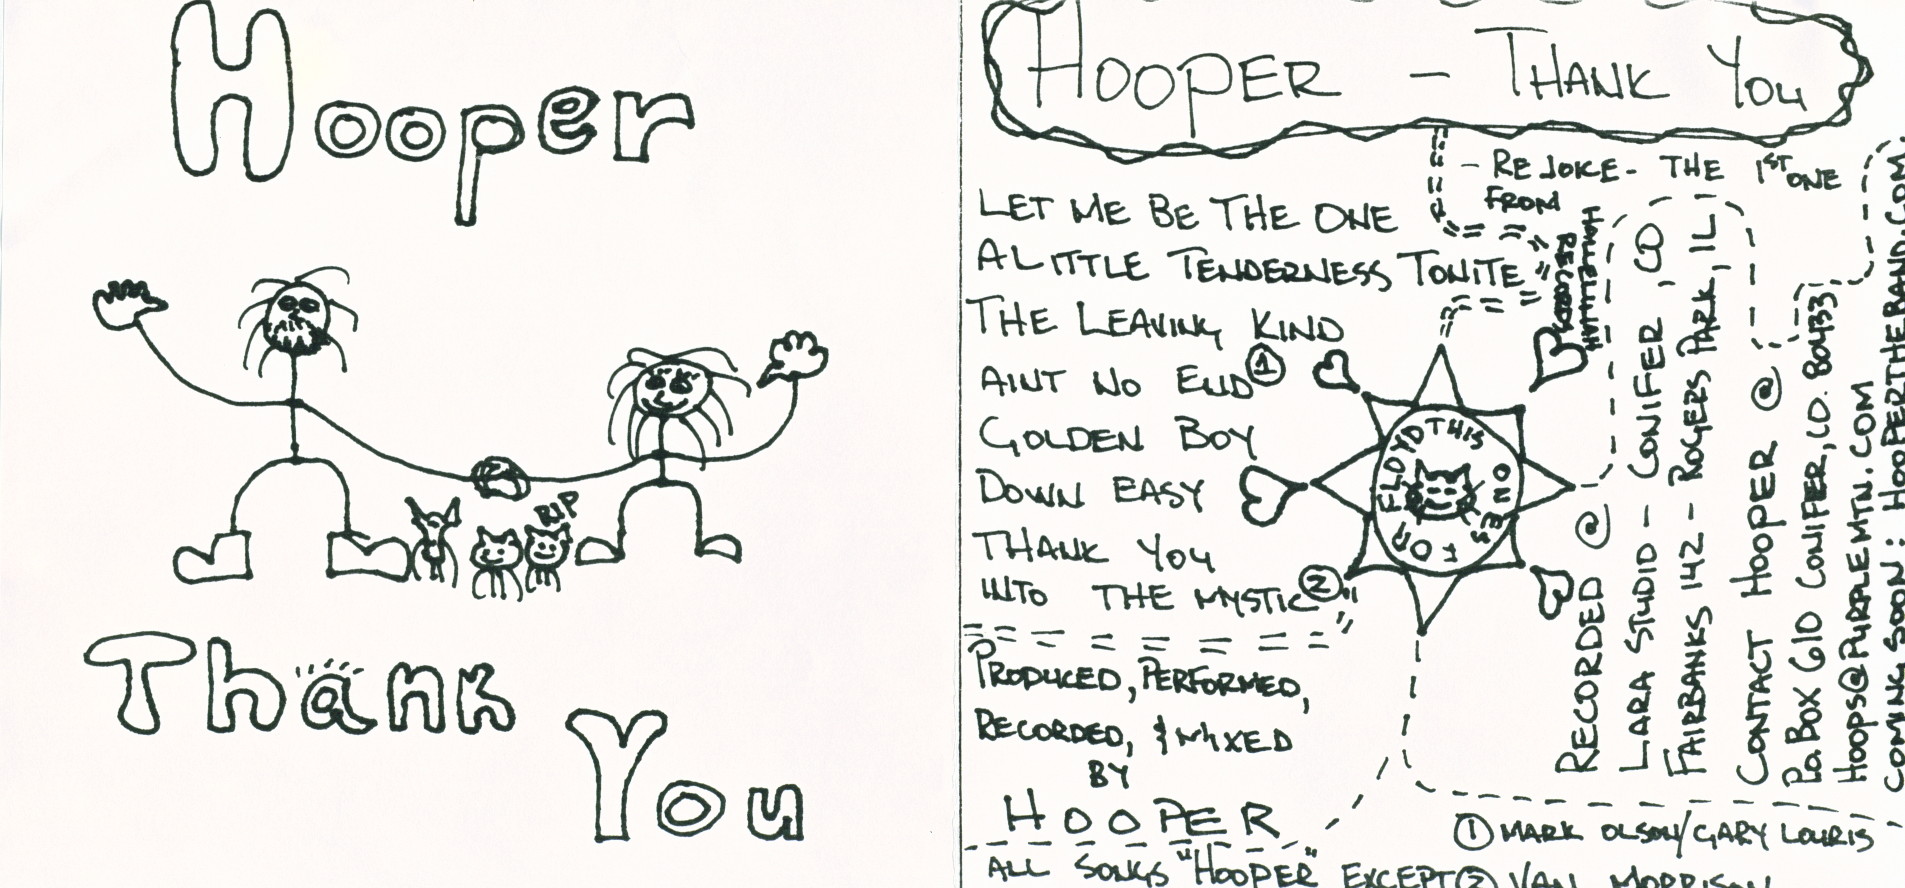 Hooper
RIP
Thank
You
HOOPER - THANK YOU
- REJOICE - THE 1ST ONE
FROM
HALLELUJAH
RECORDS
LET ME BE THE ONE
A LITTLE TENDERNESS TONITE
THE LEAVING KIND
AINT NO END ①
GOLDEN BOY
DOWN EASY
THANK YOU
INTO THE MYSTIC ②
THIS
ONE'S
FOR
FLOYD
PRODUCED, PERFORMED,
RECORDED, & MIXED
BY
HOOPER
RECORDED @
LARA STUDIO - CONIFER, CO
FAIRBANKS 142 - ROGERS PARK, IL
CONTACT HOOPER @
P.O. BOX 610 CONIFER, CO. 80433
HOOPS@PURPLEMTN.COM
COMING SOON: HOOPERTHEBAND.COM
① MARK OLSON/GARY LOURIS
ALL SONGS "HOOPER" EXCEPT ② VAN MORRISON